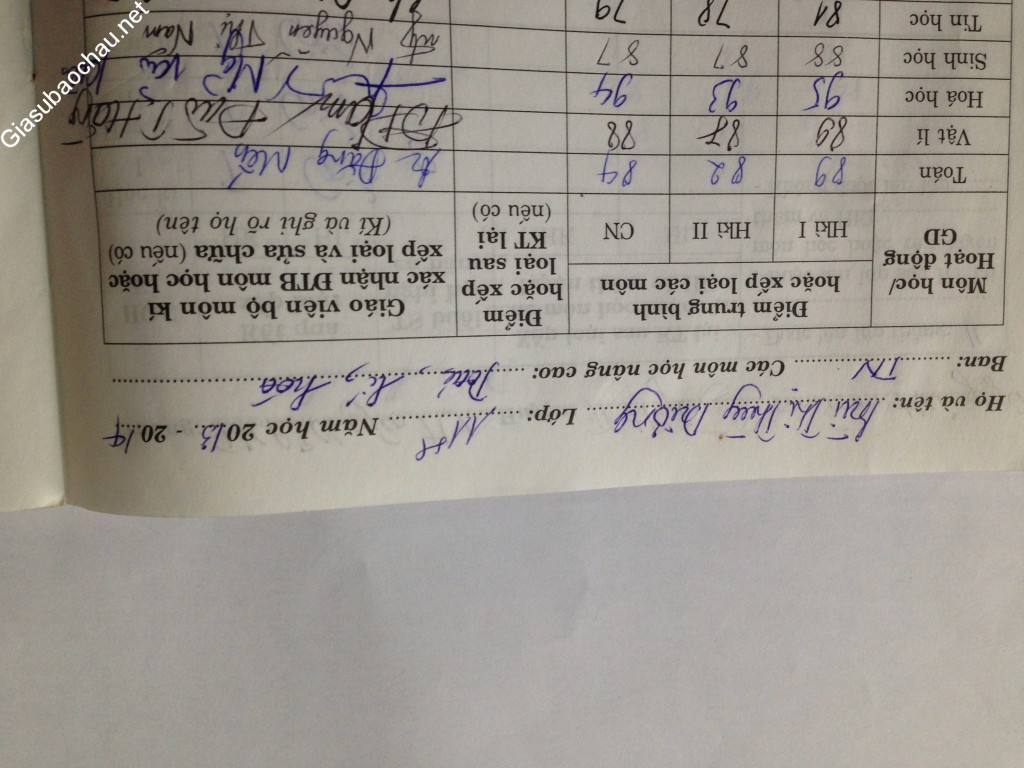 Họ và tên: Bùi Thị Thùy Dương Lớp: 11 Năm học 2013 - 2014
Ban: TN Các môn học nâng cao: Toán, Lí, Hoá
Môn học/ Hoạt động GD | Điểm trung bình hoặc xếp loại các môn | Điểm hoặc xếp loại sau KT lại (nếu có) | Giáo viên bộ môn kí xác nhận ĐTB môn học hoặc xếp loại và sửa chữa (nếu có) (Kí và ghi rõ họ tên)
HKI I HKI II CN
Toán 89 82 84 Đặng Mến
Vật lí 89 87 88
Hoá học 95 93 94
Sinh học 88 87 87 Nguyen Thị Nam
Tin học 81 78 79
Giasubaochau.net